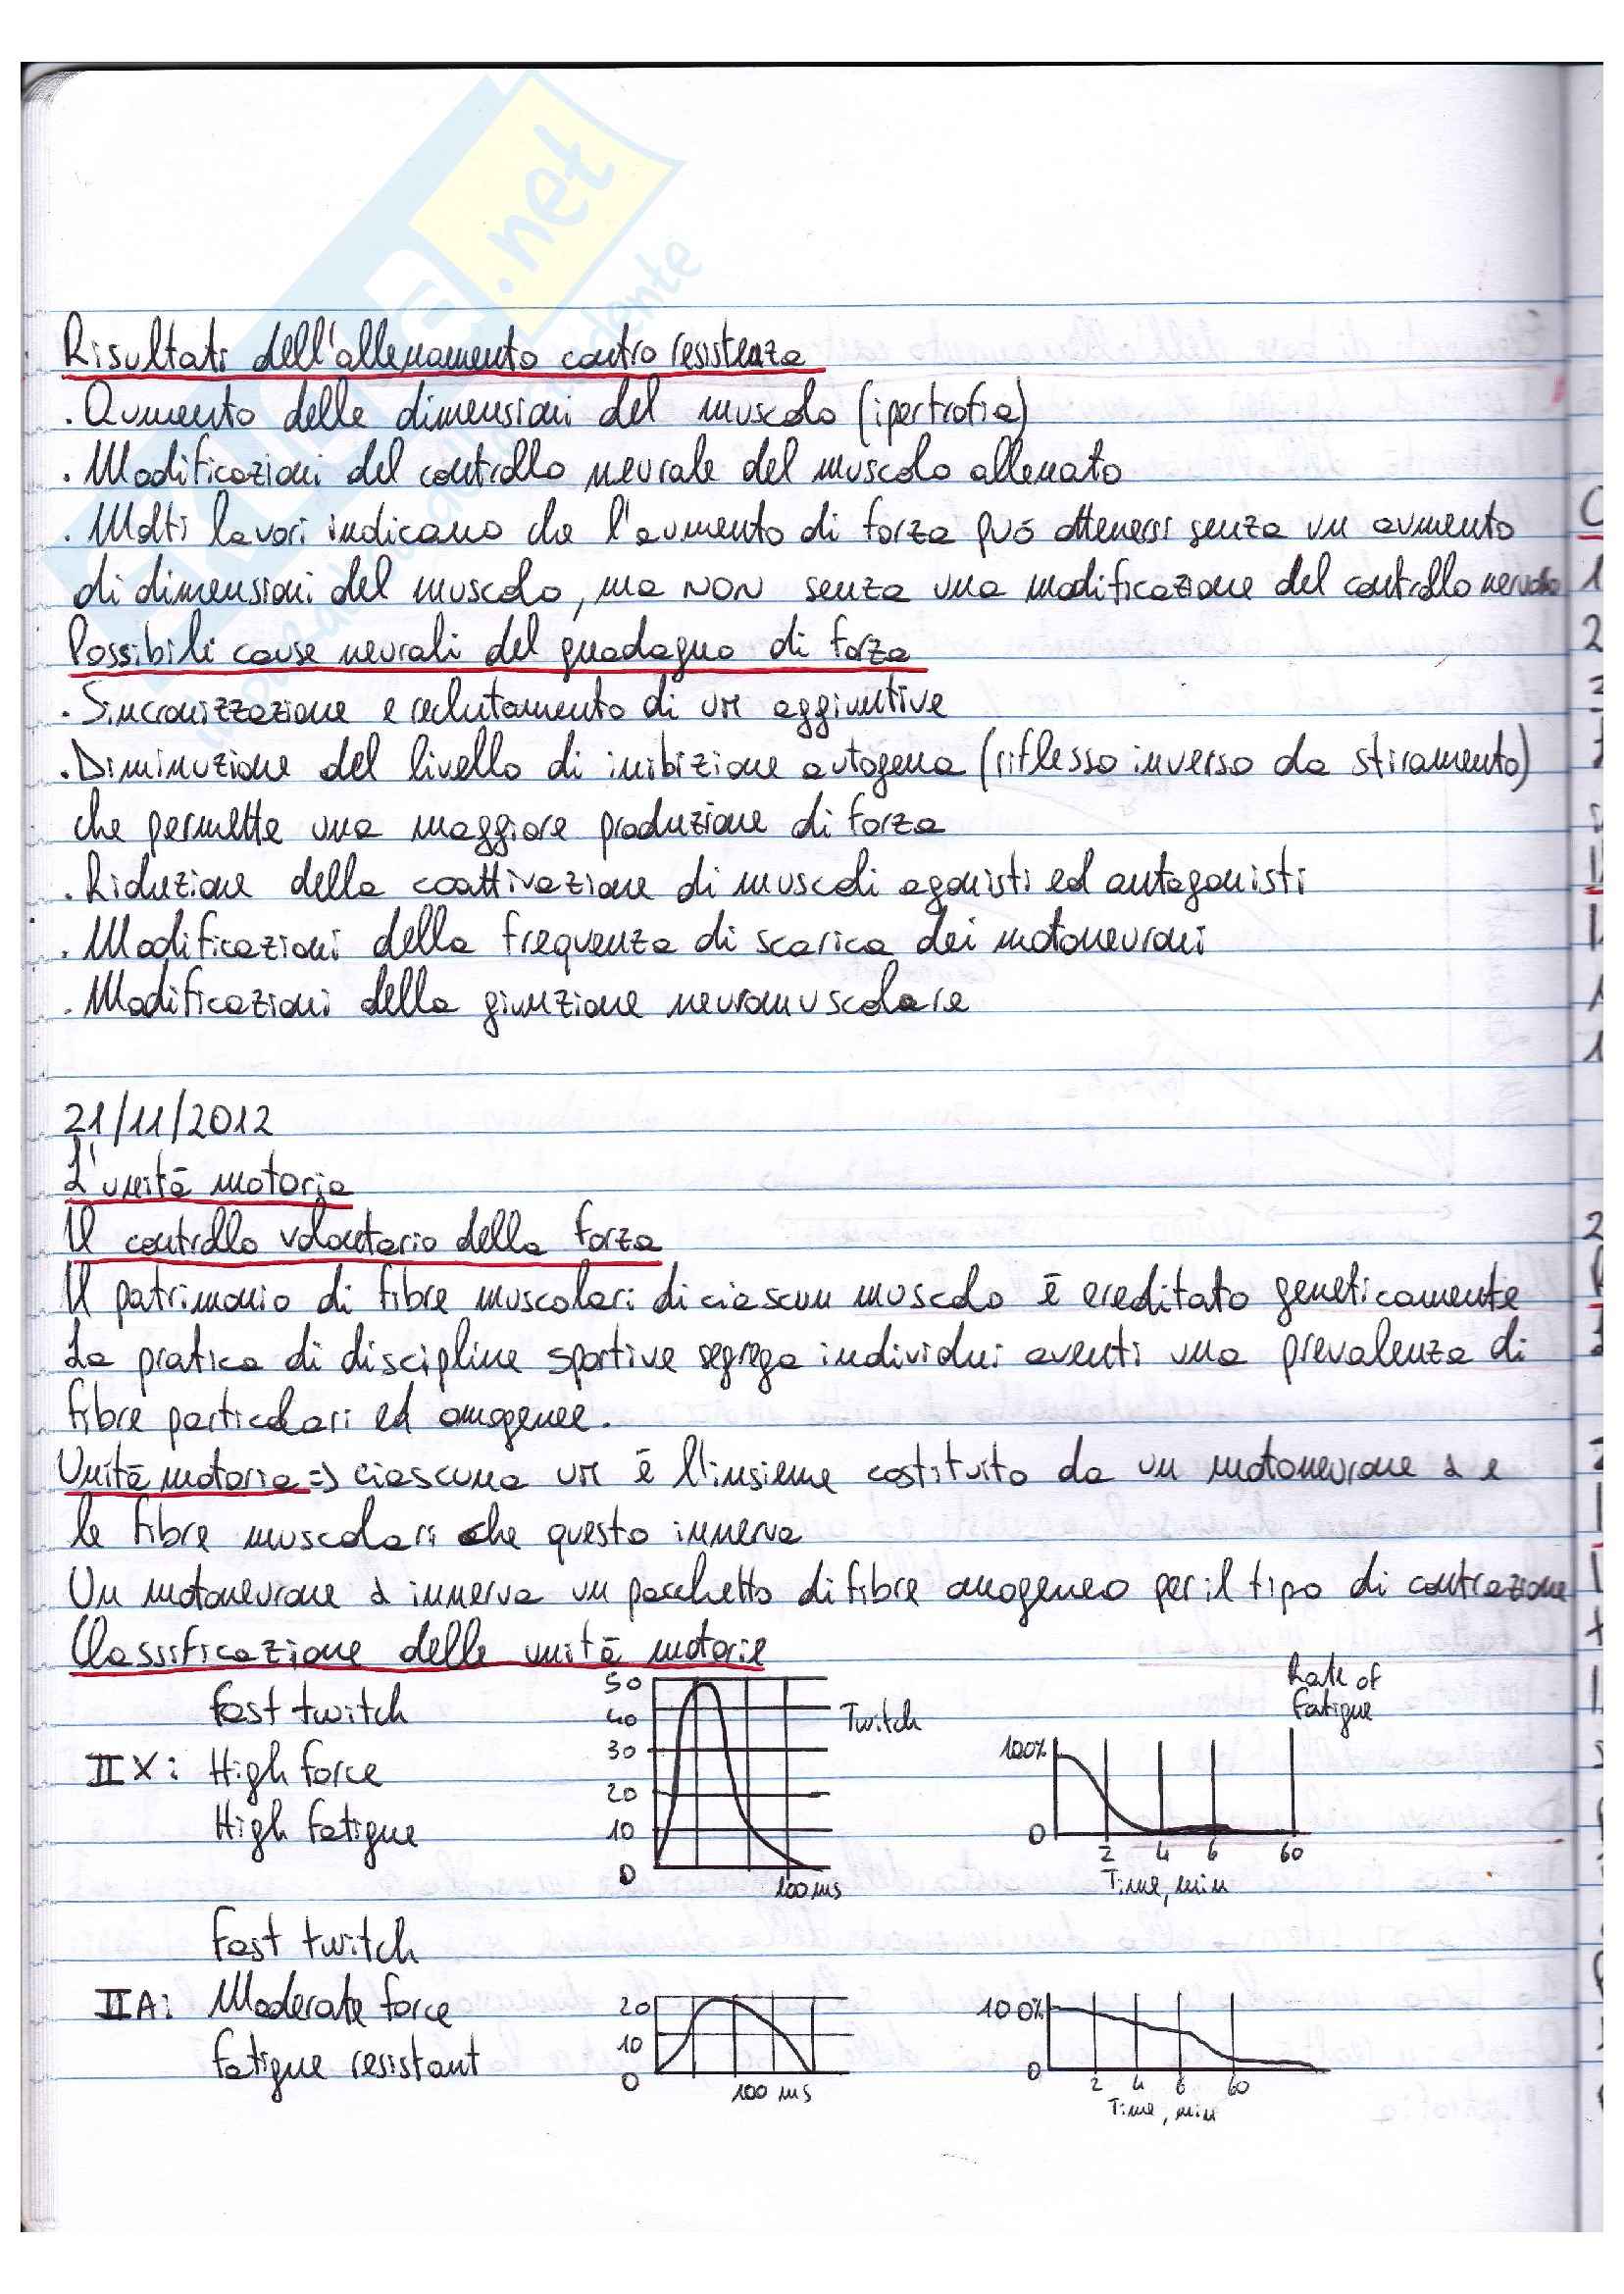 Risultati dell'allenamento contro resistenza
. Aumento delle dimensioni del muscolo (ipertrofia)
. Modificazioni del controllo neurale del muscolo allenato
. Molti lavori indicano che l'aumento di forza può ottenersi senza un aumento
di dimensioni del muscolo, ma NON senza una modificazione del controllo nervoso
Possibili cause neurali del guadagno di forza
. Sincronizzazione e reclutamento di UM aggiuntive
. Diminuzione del livello di inibizione autogena (riflesso inverso da stiramento)
che permette una maggiore produzione di forza
. Riduzione della coattivazione di muscoli agonisti ed antagonisti
. Modificazioni della frequenza di scarica dei motoneuroni
. Modificazioni della giunzione neuromuscolare
21/11/2012
L'unità motoria
Il controllo volontario della forza
Il patrimonio di fibre muscolari di ciascun muscolo è ereditato geneticamente
La pratica di discipline sportive segrega individui aventi una prevalenza di
fibre particolari ed omogenee.
Unità motoria => ciascuna UM è l'insieme costituito da un motoneurone α e
le fibre muscolari che questo innerva
Un motoneurone α innerva un pacchetto di fibre omogeneo per il tipo di contrazione
Classificazione delle unità motorie
Fast twitch
IIX: High force
High fatigue
50
40
30
20
10
0
100 ms
Twitch
Rate of
Fatigue
100%
0
2 4 6 60
Time, min
Fast twitch
IIA: Moderate force
fatigue resistant
20
10
0
100 ms
100%
0
2 4 6 60
Time, min
.net